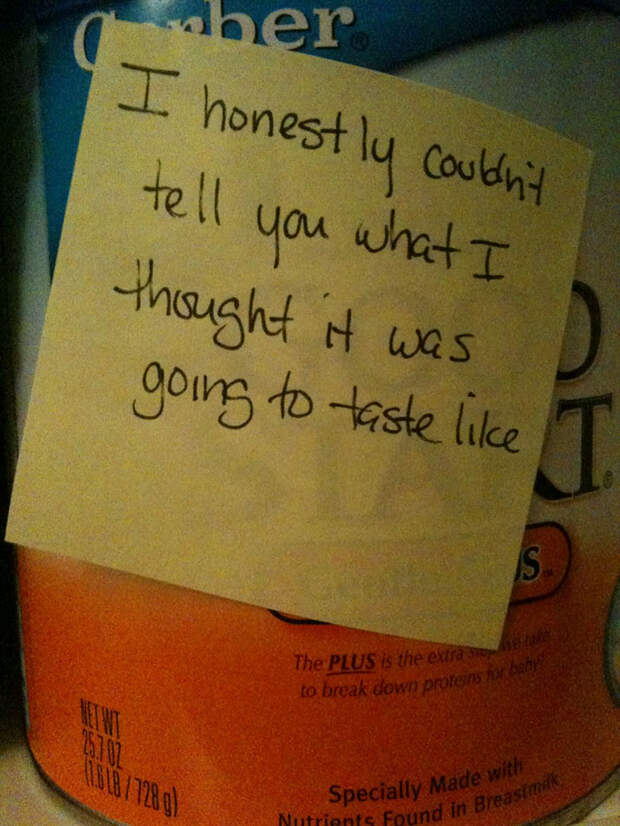 Gerber®
I honestly couldn't
tell you what I
thought it was
going to taste like
The PLUS is the extra
to break down proteins for baby
NET WT
25.7 OZ
(1.6 LB / 728 g)
Specially Made with
Nutrients Found in Breastmilk